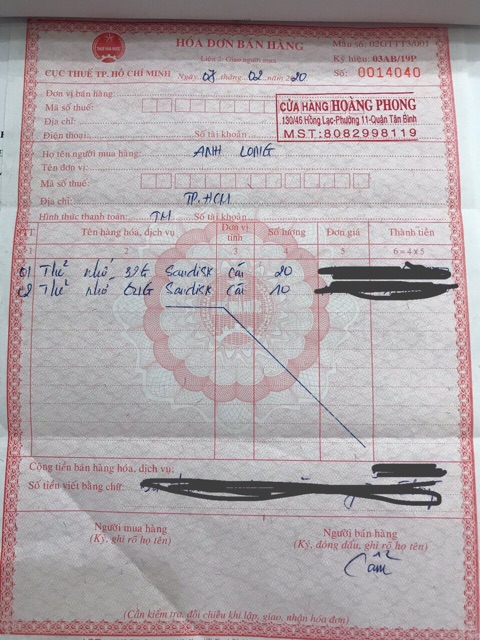 HÓA ĐƠN BÁN HÀNG
Mẫu số: 02GTTT3/001
Liên 2: Giao người mua
Ký hiệu: 03AB/19P
CỤC THUẾ TP. HỒ CHÍ MINH Ngày 08 tháng 02 năm 2020 Số: 0014040
Đơn vị bán hàng:
Mã số thuế:
Địa chỉ:
Điện thoại: Số tài khoản
CỬA HÀNG HOÀNG PHONG
130/46 Hồng Lạc-Phường 11-Quận Tân Bình
MST:8082998119
Họ tên người mua hàng: ANH LONG
Tên đơn vị:
Mã số thuế:
Địa chỉ: TP.HCM
Hình thức thanh toán: TM Số tài khoản
STT Tên hàng hóa, dịch vụ Đơn vị tính Số lượng Đơn giá Thành tiền
1 2 3 4 5 6 = 4 x 5
01 Thẻ nhớ 32G Sandisk Cái 20
02 Thẻ nhớ 64G Sandisk Cái 10
Cộng tiền bán hàng hóa, dịch vụ:
Số tiền viết bằng chữ:
Người mua hàng Người bán hàng
(Ký, ghi rõ họ tên) (Ký, đóng dấu, ghi rõ họ tên)
(Cần kiểm tra, đối chiếu khi lập, giao, nhận hóa đơn)